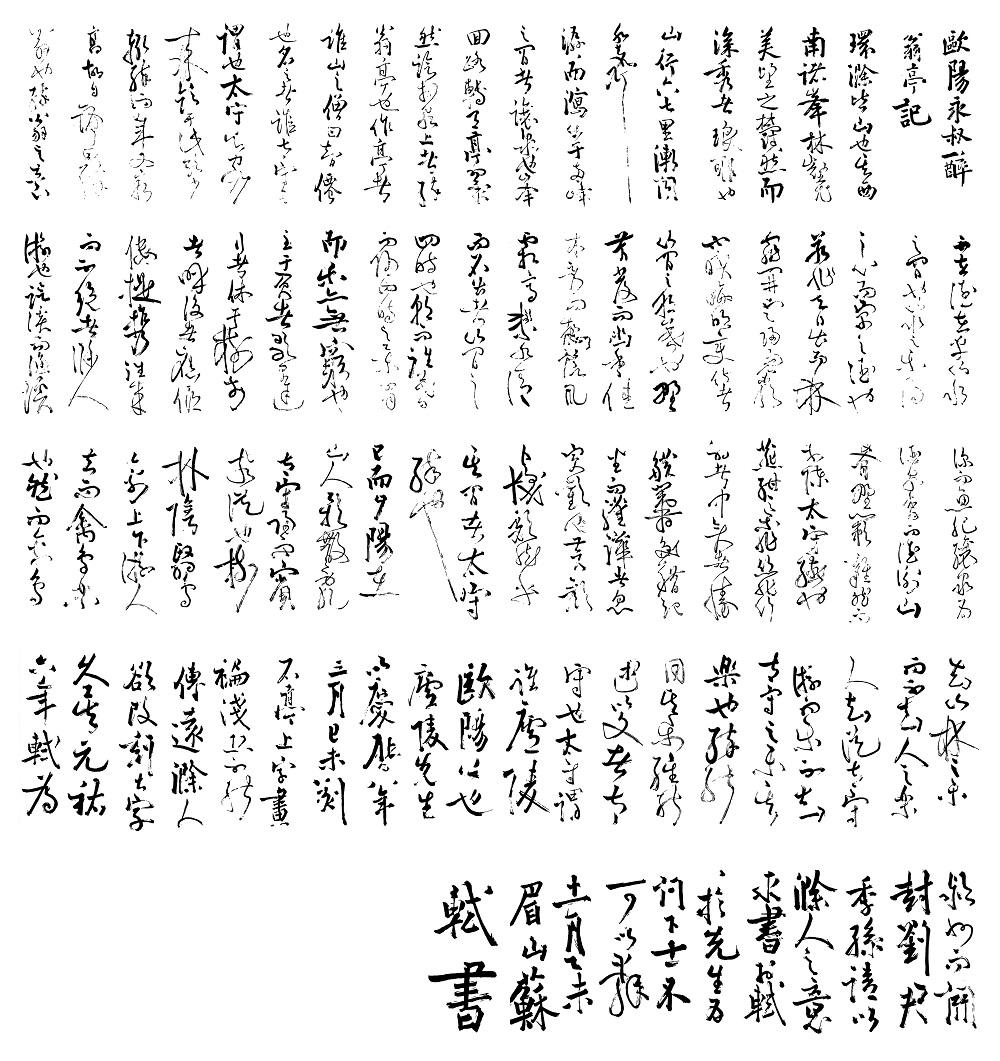 歐陽永叔醉
翁亭記
環滁皆山也其西
南諸峯林壑尤
美望之蔚然而
深秀者瑯琊也
山行六七里漸聞
水聲
潺潺而瀉出于兩峰
之間者讓泉也峰
回路轉有亭翼
然臨於泉上者醉
翁亭也作亭者
誰山之僧曰智僊
也名之者誰太守自
謂也太守與客
來飲于此飲少
輒醉而年又最
高故自號曰醉
翁也醉翁之意
不在酒在乎山水
之間也山水之樂得
之心而寓之酒也
若夫日出而林
霏開雲歸而巖
穴暝晦明變化者
山間之朝暮也野
芳發而幽香佳
木秀而繁陰風
霜高潔水清
而石出者山間之
四時也朝而往暮而
歸四時之景不同
而樂亦無窮也
至于負者歌于途
行者休于樹前
者呼後者應傴
僂提攜往來
而不絕者滁人
游也臨溪而漁溪
深而魚肥釀泉為
酒泉香而酒洌山
肴野蔌雜然而
前陳太守宴也
宴酣之樂非絲非竹
射者中奕者勝
觥籌交錯起
坐而諠譁者衆
賓懽也蒼顏
白髮頹然乎
其間者太守
醉也
已而夕陽在
山人影散亂
太守歸而賓
客從也樹
林陰翳鳴
聲上下遊人
去而禽鳥樂
也然而禽鳥
知山林之樂
而不知人之樂
人知從太守
游而樂而不知
太守之樂其
樂也醉能
同其樂醒能
述以文者太
守也太守謂
誰廬陵
歐陽公也
廬陵先生
以慶曆八年
三月己未刻
石亭上字畫
褊淺恐不能
傳遠滁人
欲改刻大字
久矣元祐
六年軾為
潁州而開
封劉君
季孫請以
滁人之意
求書於軾
軾於先生為
門下士不
可以辭
十一月乙未
眉山蘇
軾書